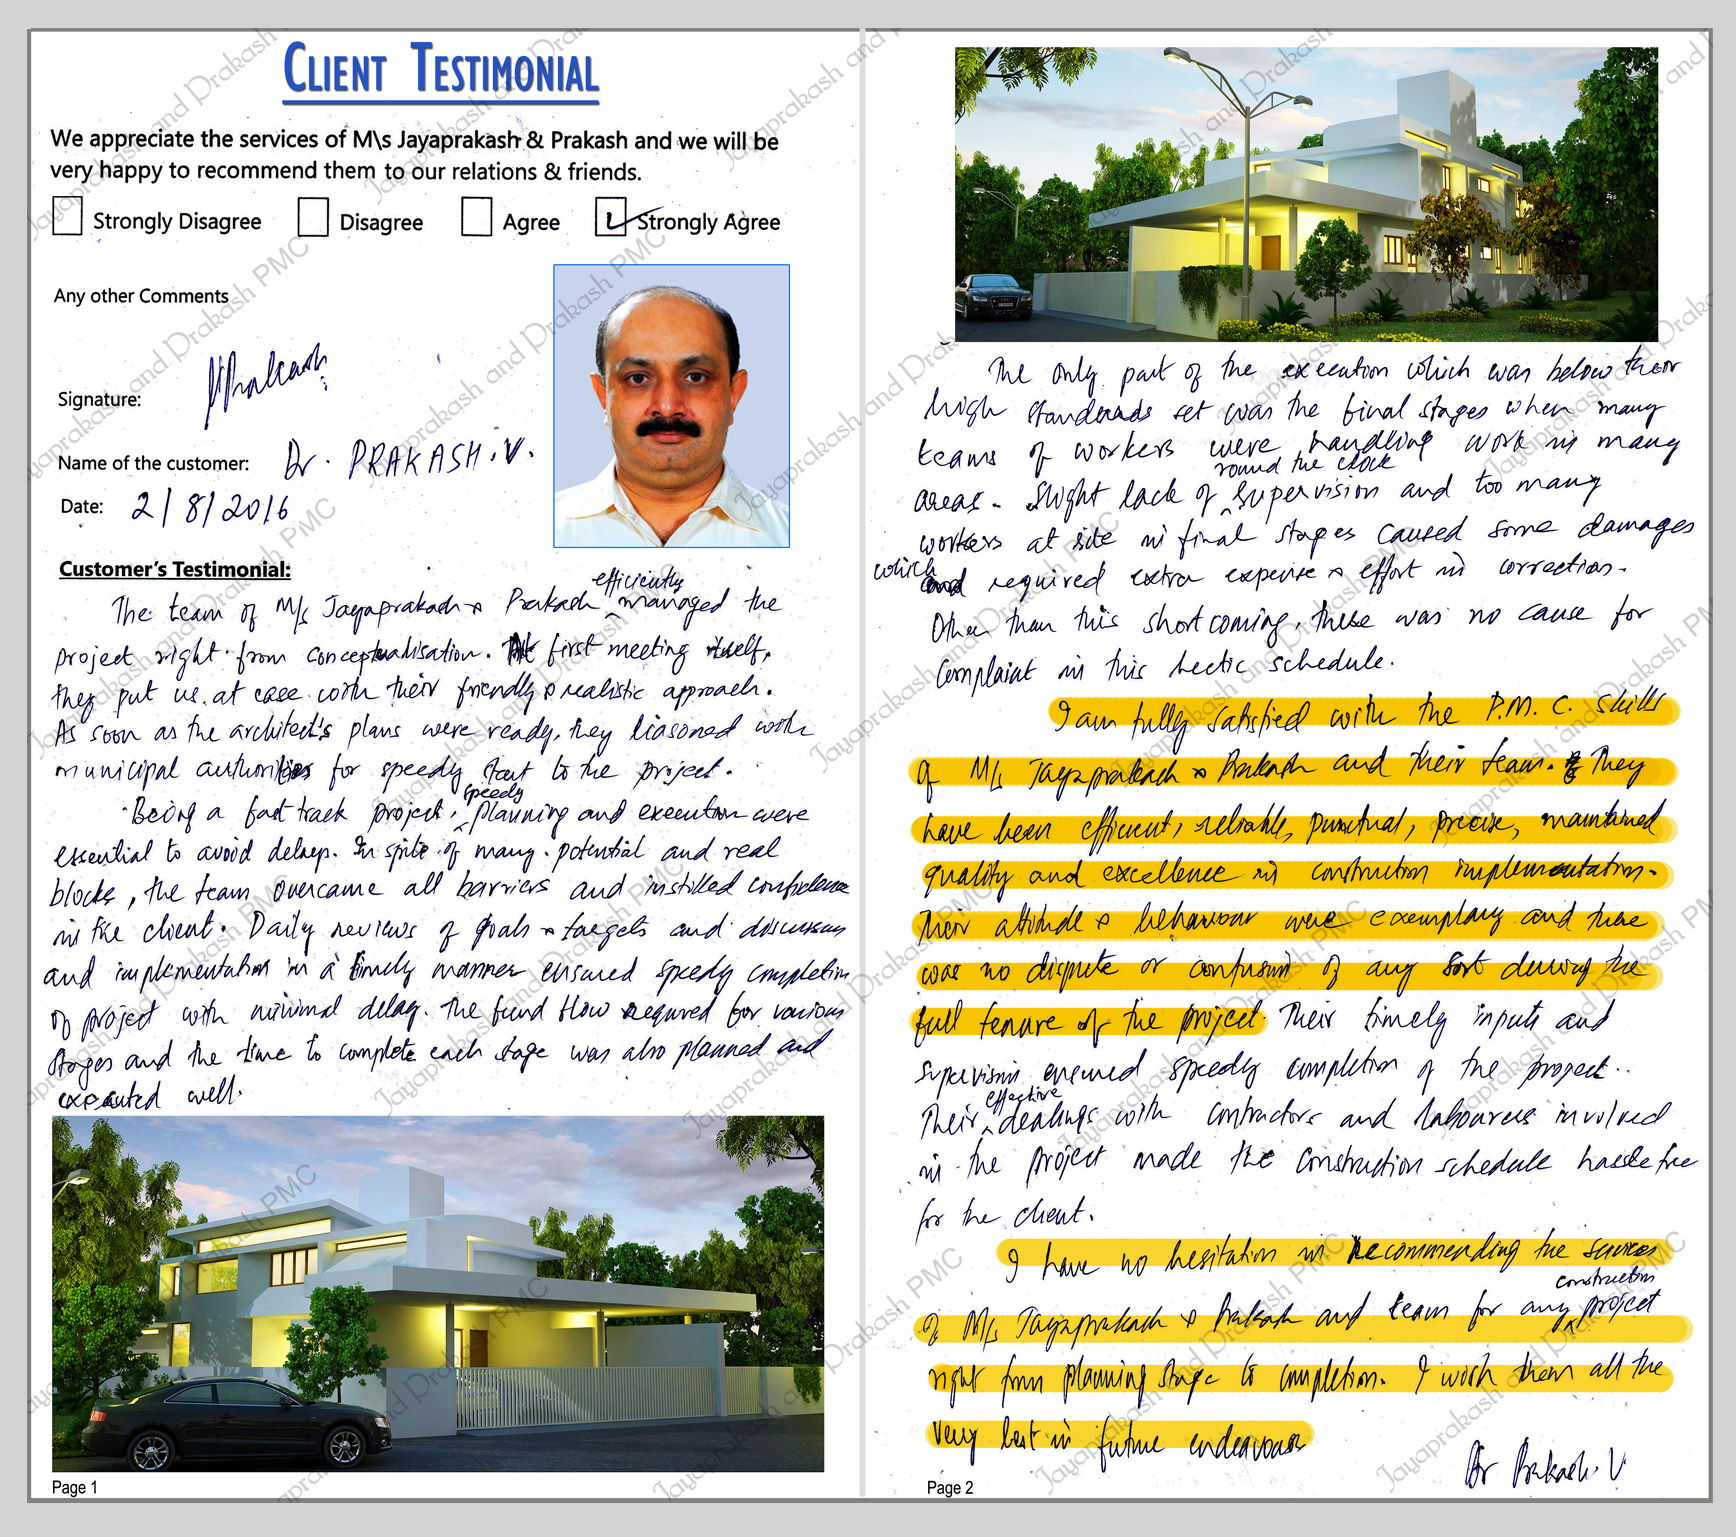 CLIENT TESTIMONIAL
We appreciate the services of M\s Jayaprakash & Prakash and we will be
very happy to recommend them to our relations & friends.
Strongly Disagree Disagree Agree Strongly Agree
Any other Comments
Signature:
Name of the customer: Dr. PRAKASH.V.
Date: 2/8/2016
Customer's Testimonial:
The team of M/s Jayaprakash & Prakash efficiently managed the
project right from conceptualisation. At first meeting itself,
they put us at ease with their friendly & realistic approach.
As soon as the architect's plans were ready, they liasoned with
municipal authorities for speedy start to the project.
Being a fast track project, speedy planning and execution were
essential to avoid delays. In spite of many potential and real
blocks, the team overcame all barriers and instilled confidence
in the client. Daily reviews of goals & targets and discussion
and implementation in a timely manner ensured speedy completion
of project with minimal delay. The fund flow required for various
stages and the time to complete each stage was also planned and
executed well.
Page 1
The only part of the execution which was below their
high standards set was the final stages when many
teams of workers were handling work in many
areas. Slight lack of round the clock supervision and too many
workers at site in final stages caused some damages
which required extra expense & effort in correction.
Other than this shortcoming, there was no cause for
complaint in this hectic schedule.
I am fully satisfied with the P.M.C. skills
of M/s Jayaprakash & Prakash and their team. They
have been efficient, reliable, punctual, precise, maintained
quality and excellence in construction implementation.
Their attitude & behaviour were exemplary and there
was no dispute or confusion of any sort during the
full tenure of the project. Their timely inputs and
supervision ensured speedy completion of the project..
Their effective dealings with contractors and labourers involved
in the project made the construction schedule hassle free
for the client.
I have no hesitation in recommending the services
of M/s Jayaprakash & Prakash and team for any construction project
right from planning stage to completion. I wish them all the
very best in future endeavours
Dr Prakash.V
Page 2
Jayaprakash and Prakash PMC